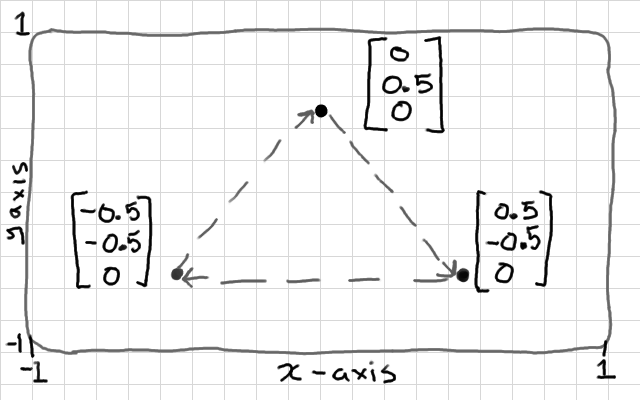 1
0
0.5
0
y axis
-0.5
-0.5
0
0.5
-0.5
0
-1
-1
x-axis
1